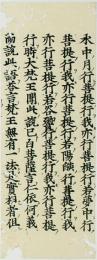 水中月行菩提行我亦行菩提行若夢中行
菩提行我亦行菩提行若陽焰行菩提行我
亦行菩提行若谷響行菩提行我亦行菩提
行時大梵王聞此說已白菩薩言仁依何義
而說此語答言梵王無有一法是實相者但